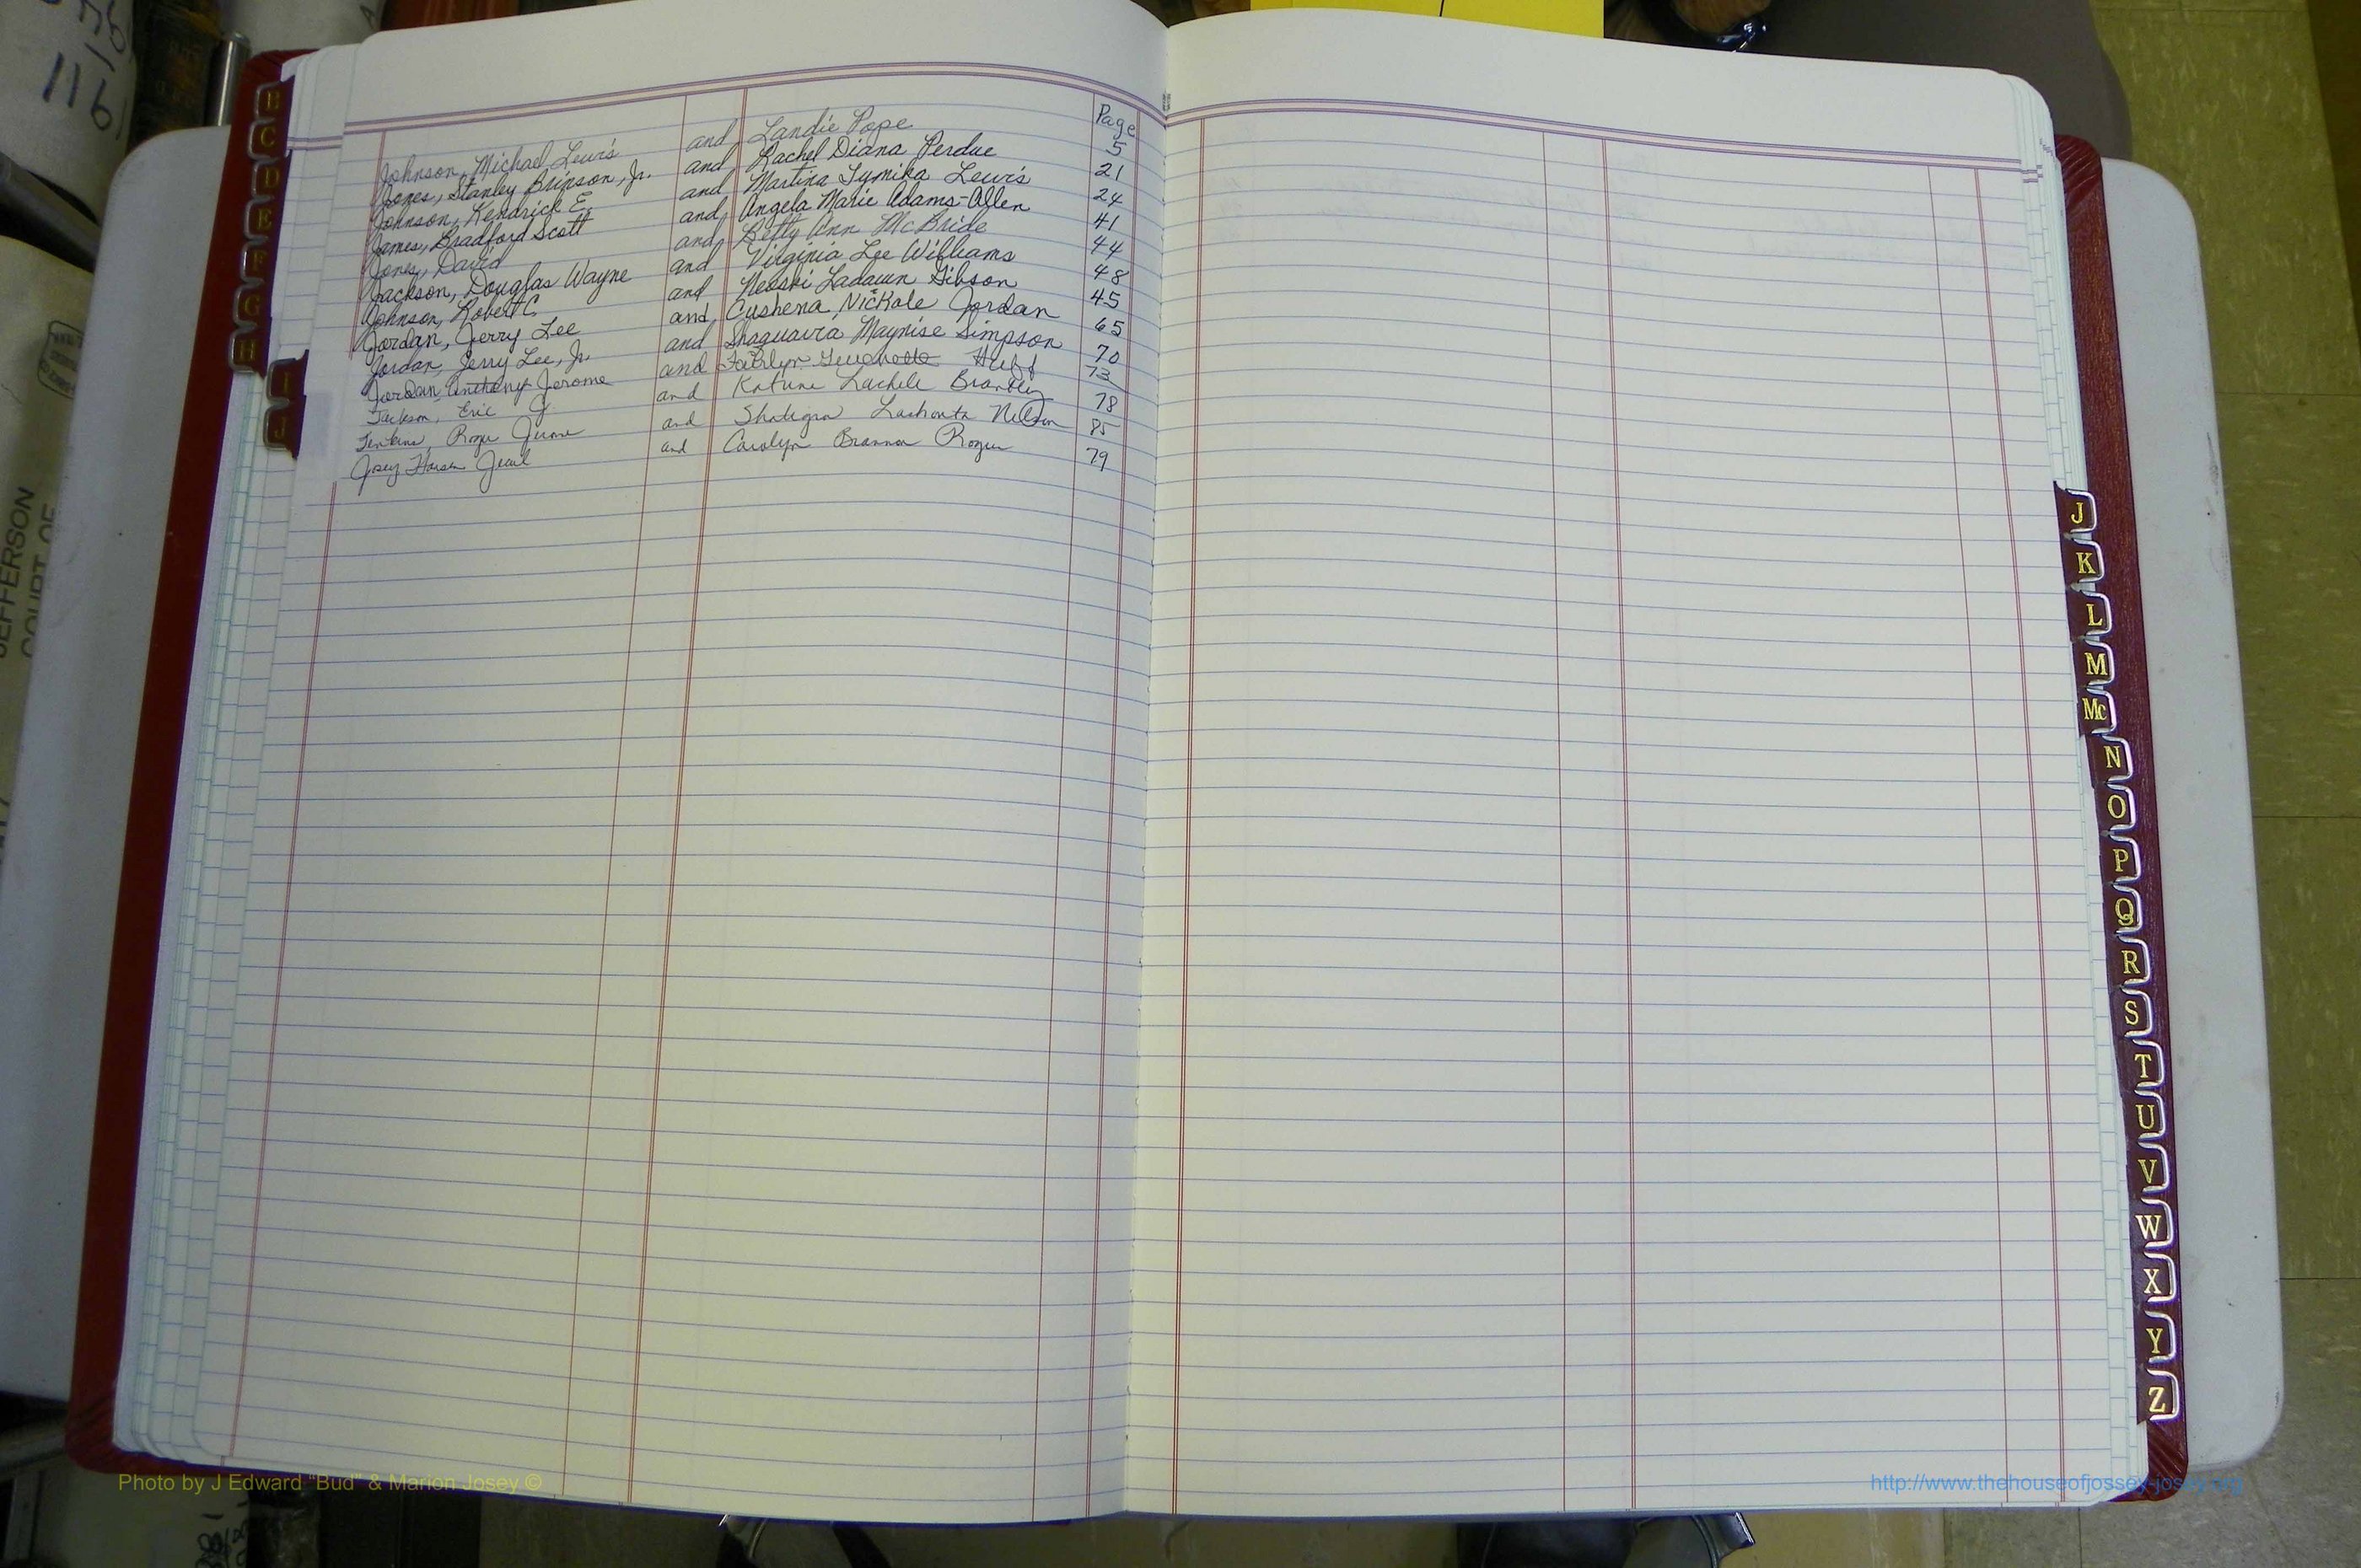 1161
JEFFERSON
COURT OF
B
C
D
E
F
G
H
I
J
Page
Johnson, Michael Lewis and Landie Pope 5
Jones, Stanley Brinson, Jr. and Rachel Diana Perdue 21
Johnson, Kendrick E. and Martina Tymika Lewis 24
James, Bradford Scott and Angela Marie Adams-Allen 41
Jones, David and Betty Ann McBride 44
Jackson, Douglas Wayne and Virginia Lee Williams 48
Johnson, Robert C. and Ladawn Gibson 45
Jordan, Jerry Lee and Cushena Nickole Jordan 65
Jordan, Jerry Lee, Jr. and Shaquavra Maynise Simpson 70
Jordan, Anthony Jerome and Huff 73
Jackson, Eric J. and Lachele Brantley 78
Jenkins, and Lashonta 85
Josey and Carolyn Brannon 79
J
K
L
M
Mc
N
O
P
Q
R
S
T
U
V
W
X
Y
Z
Photo by J Edward "Bud" & Marion Josey ©
http://www.thehouseofjossey-josey.org